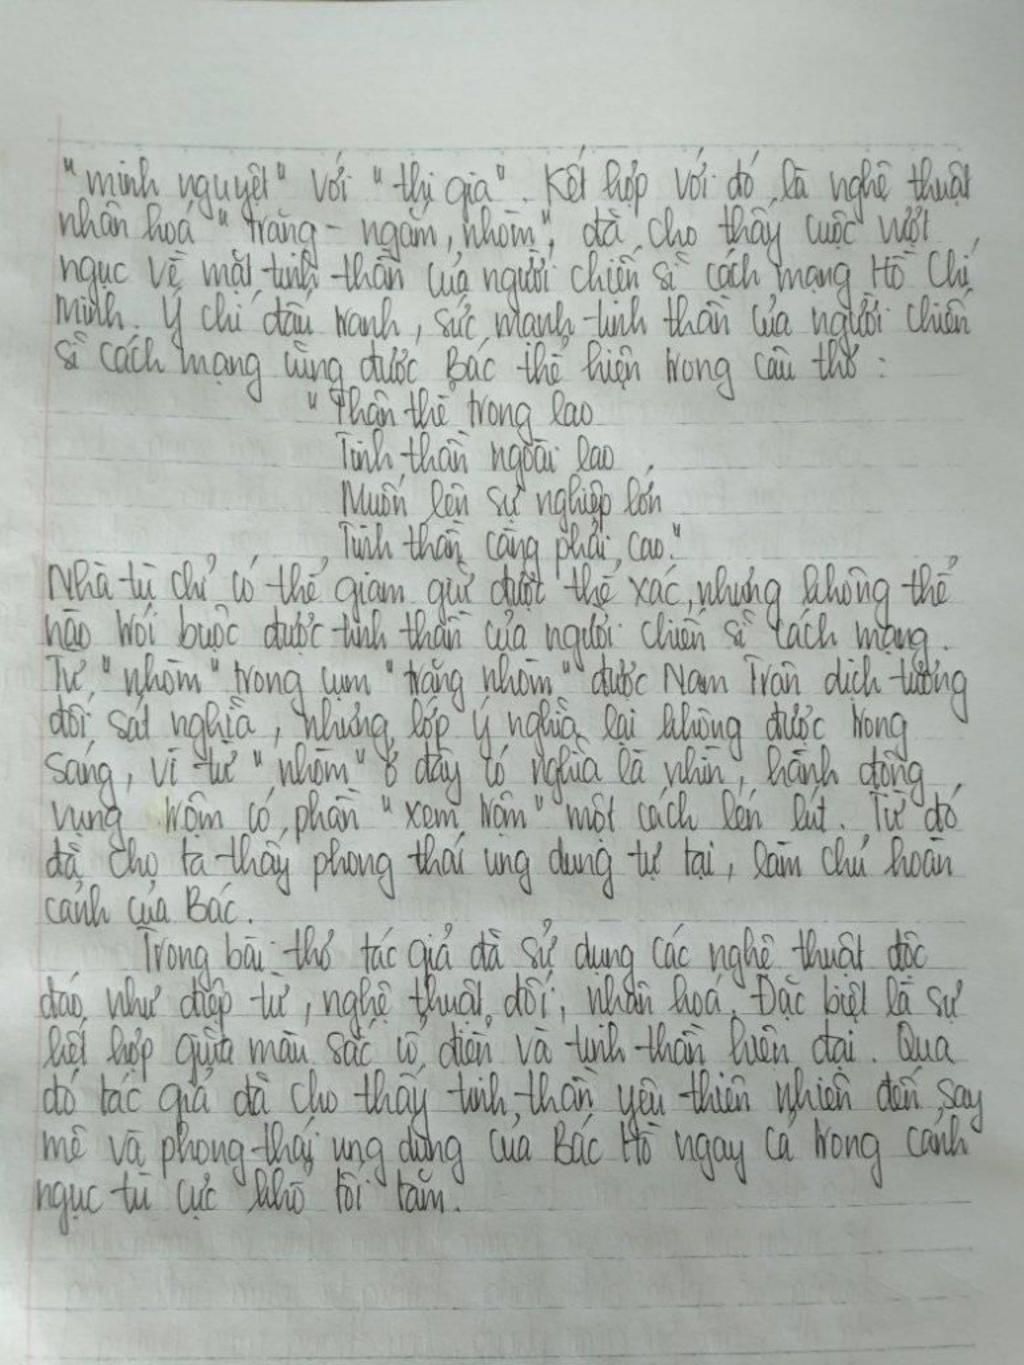 "minh nguyệt" với "thi gia". Kết hợp với đó, là nghệ thuật
nhân hoá "trăng - ngắm, nhòm", đã cho thấy cuộc vượt
ngục về mặt tinh thần của người chiến sĩ cách mạng Hồ Chí
Minh. Ý chí đấu tranh, sức mạnh tinh thần của người chiến
sĩ cách mạng cũng được Bác thể hiện trong câu thơ :
"Thân thể trong lao
Tinh thần ngoài lao
Muốn lên sự nghiệp lớn
Tinh thần càng phải cao."
Nhà tù chỉ có thể giam giữ được thể xác, nhưng không thể
nào trói buộc được tinh thần của người chiến sĩ cách mạng.
Từ "nhòm" trong cụm "trăng nhòm" được Nam Trân dịch tương
đối sát nghĩa, nhưng lớp ý nghĩa lại không được trong
sáng, vì từ "nhòm" ở đây có nghĩa là nhìn, hành động
vụng trộm có phần "xem trộm" một cách lén lút. Từ đó
đã cho ta thấy phong thái ung dung tự tại, làm chủ hoàn
cảnh của Bác.
Trong bài thơ tác giả đã sử dụng các nghệ thuật độc
đáo như điệp từ, nghệ thuật đối, nhân hoá. Đặc biệt là sự
kết hợp giữa màu sắc cổ điển và tinh thần hiện đại. Qua
đó tác giả đã cho thấy tinh thần yêu thiên nhiên đến say
mê và phong thái ung dung của Bác Hồ ngay cả trong cảnh
ngục tù cực khổ tối tăm.